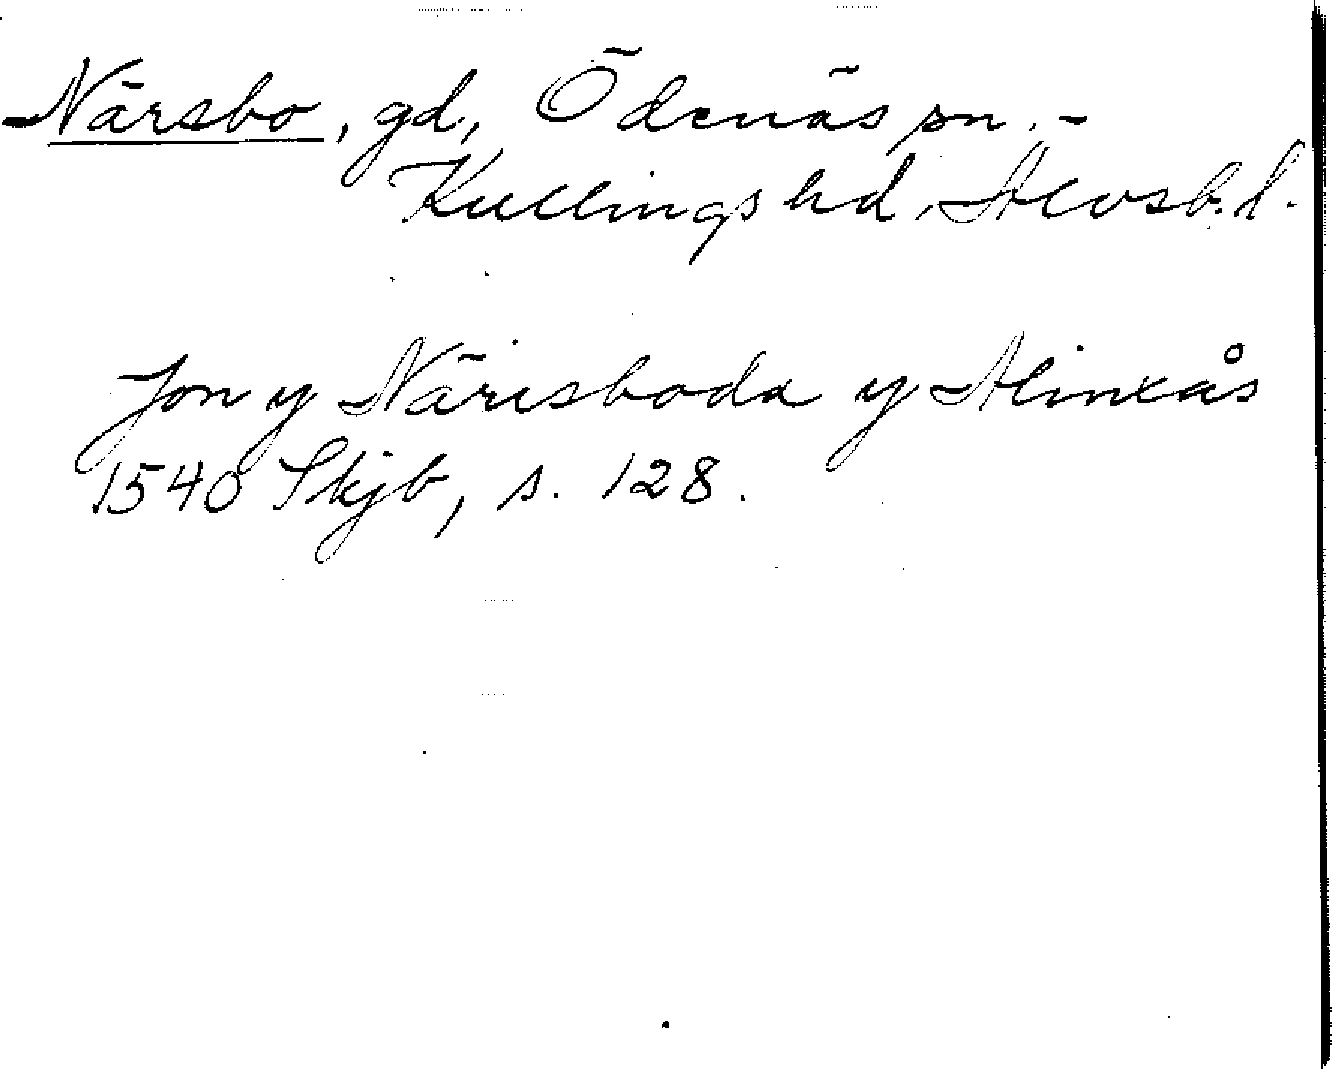 Närsbo, gd, Ödenäs sn.
Kullings hd, Älvsb. l.
Jon y Närisboda y Alinxås
1540 Skjb, s. 128.